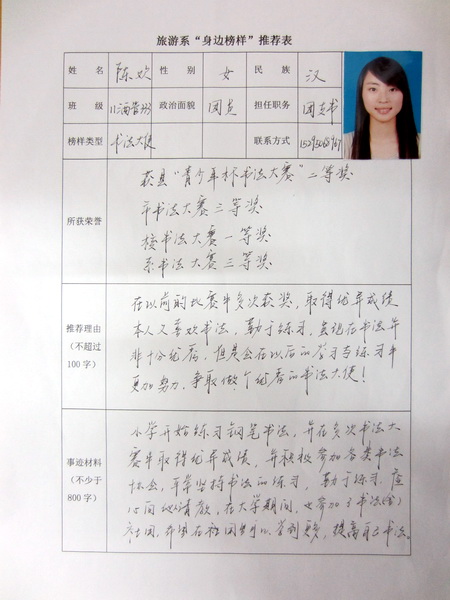 旅游系“身边榜样”推荐表
姓 名 陈欢 性 别 女 民 族 汉
班 级 11酒管班 政治面貌 团员 担任职务 团支书
榜样类型 书法大使 联系方式
所获荣誉
获县“青少年杯书法大赛”二等奖
市书法大赛三等奖
校书法大赛一等奖
系书法大赛三等奖
推荐理由
(不超过
100字)
在以前的比赛中多次获奖,取得优异成绩
本人又喜欢书法,勤于练习,虽说在书法并
非十分优秀,但是会在以后的学习与练习中
更加努力,争取做个优秀的书法大使!
事迹材料
(不少于
800字)
小学开始练习钢笔书法,并在多次书法大
赛中取得优异成绩,并积极参加各类书法
协会,平常坚持书法的练习,勤于练习
在大学期间,也参加了书法
社团,希望在社团 可以学到更多,提高自己书法。